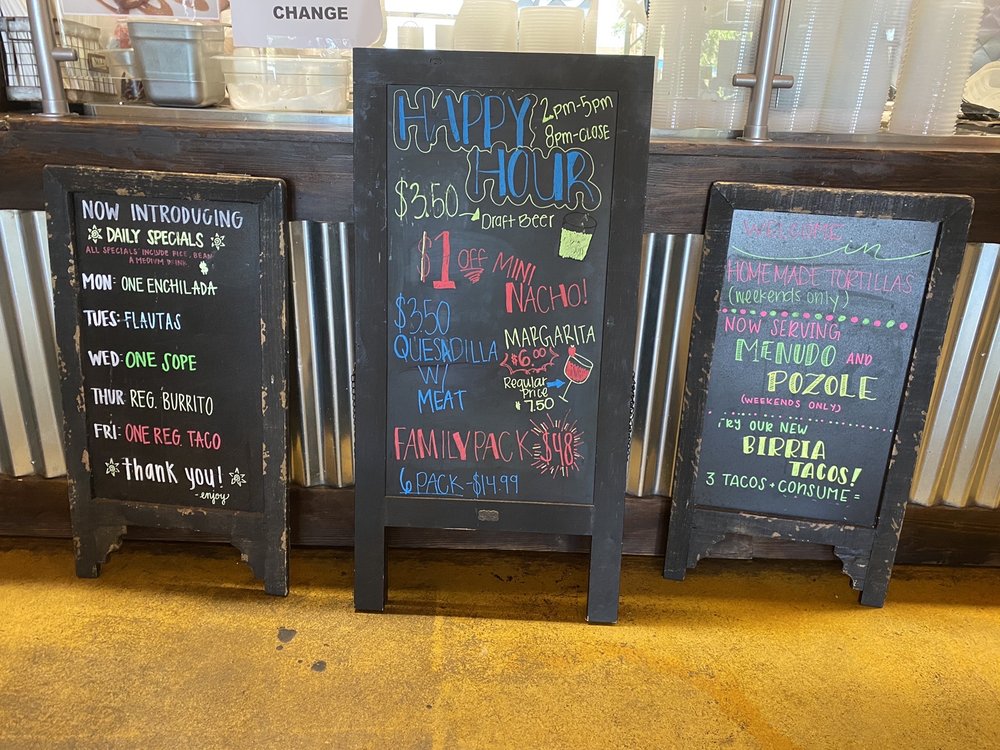 CHANGE
NOW INTRODUCING
DAILY SPECIALS
ALL SPECIALS INCLUDE RICE, BEAN
A MEDIUM DRINK
MON: ONE ENCHILADA
TUES: FLAUTAS
WED: ONE SOPE
THUR: REG. BURRITO
FRI: ONE REG. TACO
thank you!
-enjoy
HAPPY
HOUR
2pm-5pm
8pm-CLOSE
$3.50 Draft Beer
$1 OFF MINI
NACHO!
$3.50
QUESADILLA
W/
MEAT
MARGARITA
$6.00
Regular
Price
$7.50
FAMILY PACK $48
6 PACK-$14.99
WELCOME
in
HOMEMADE TORTILLAS
(weekends only)
NOW SERVING
MENUDO AND
POZOLE
(WEEKENDS ONLY)
TRY OUR NEW
BIRRIA
TACOS!
3 TACOS + CONSUME =